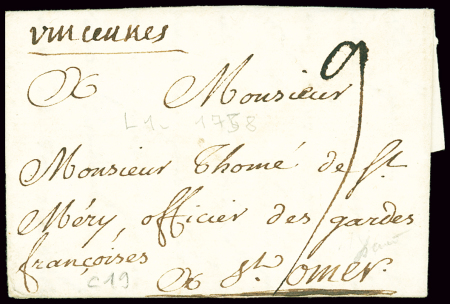 Vincennes
9
A Monsieur
L1. 1758
Monsieur Thomé de St.
Méry, officier des gardes
françoises
C19
A St. omer.